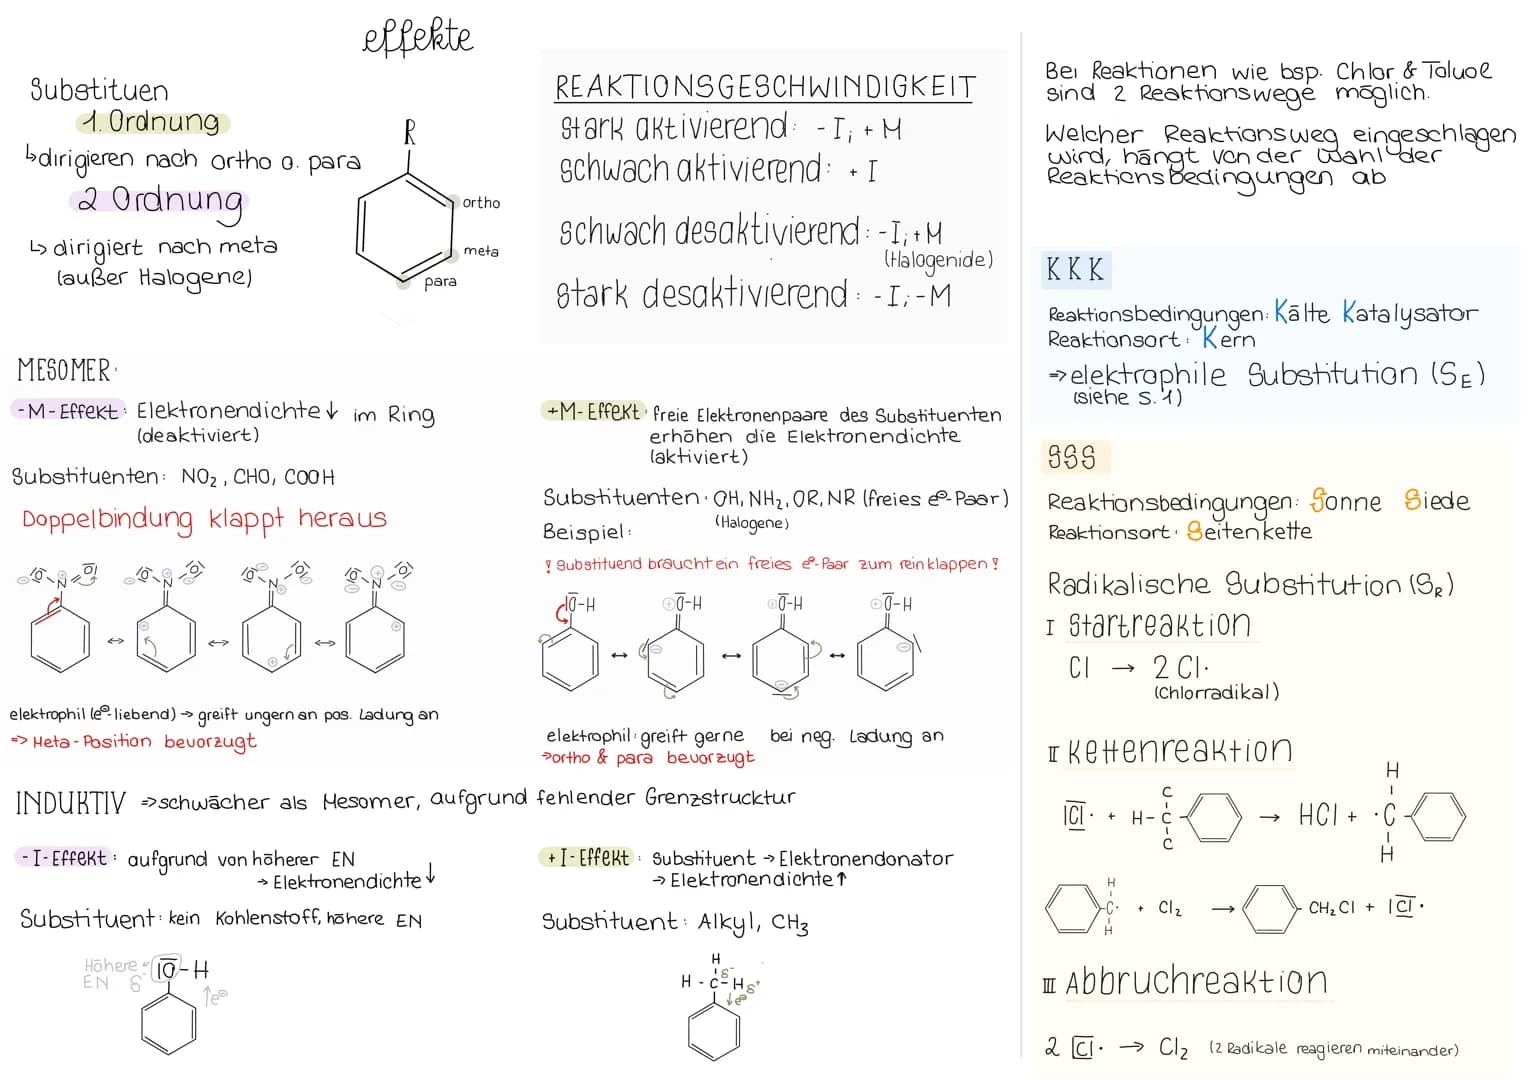 effekte
Substituen
1. Ordnung
↳dirigieren nach ortho o. para
2 Ordnung
↳ dirigiert nach meta
(außer Halogene)
R
ortho
meta
para
REAKTIONSGESCHWINDIGKEIT
stark aktivierend: -I; +M
schwach aktivierend: +I
schwach desaktivierend: -I; +M
(Halogenide)
stark desaktivierend: -I; -M
MESOMER:
-M-Effekt: Elektronendichte↓ im Ring
(deaktiviert)
Substituenten: NO₂, CHO, COOH
Doppelbindung klappt heraus
elektrophil (e⊖-liebend) → greift ungern an pos. Ladung an
=> Meta-Position bevorzugt
+M-Effekt: freie Elektronenpaare des Substituenten
erhöhen die Elektronendichte
(aktiviert)
Substituenten: OH, NH₂, OR, NR (freies e⊖-Paar)
(Halogene)
Beispiel:
! Substituend braucht ein freies e⊖-Paar zum reinklappen!
|O̅-H ⊕O̅-H ⊕O̅-H ⊕O̅-H
elektrophil: greift gerne bei neg. Ladung an
→ortho & para bevorzugt
INDUKTIV =>schwächer als Mesomer, aufgrund fehlender Grenzstrucktur
-I-Effekt: aufgrund von höherer EN
→ Elektronendichte↓
Substituent: kein Kohlenstoff, höhere EN
Höhere
EN δ⁻
|O̅-H
↑e⊖
+I-Effekt: Substituent → Elektronendonator
→ Elektronendichte↑
Substituent: Alkyl, CH₃
H
δ⁻
H-C-H δ⁺
↓e⊖
Bei Reaktionen wie bsp. Chlor & Toluol
sind 2 Reaktionswege möglich.
Welcher Reaktionsweg eingeschlagen
wird, hängt von der Wahl der
Reaktionsbedingungen ab
KKK
Reaktionsbedingungen: Kälte Katalysator
Reaktionsort: Kern
=>elektrophile Substitution (SE)
(siehe S.1)
SSS
Reaktionsbedingungen: Sonne Siede
Reaktionsort: Seitenkette
Radikalische Substitution (SR)
I Startreaktion
Cl → 2 Cl·
(Chlorradikal)
II Kettenreaktion
C H
|C̅l̲· + H-C → HCl + ·C
C H
H
C· + Cl₂ → CH₂Cl + |C̅l̲·
H
III Abbruchreaktion
2 |C̅l̲· → Cl₂ (2 Radikale reagieren miteinander)